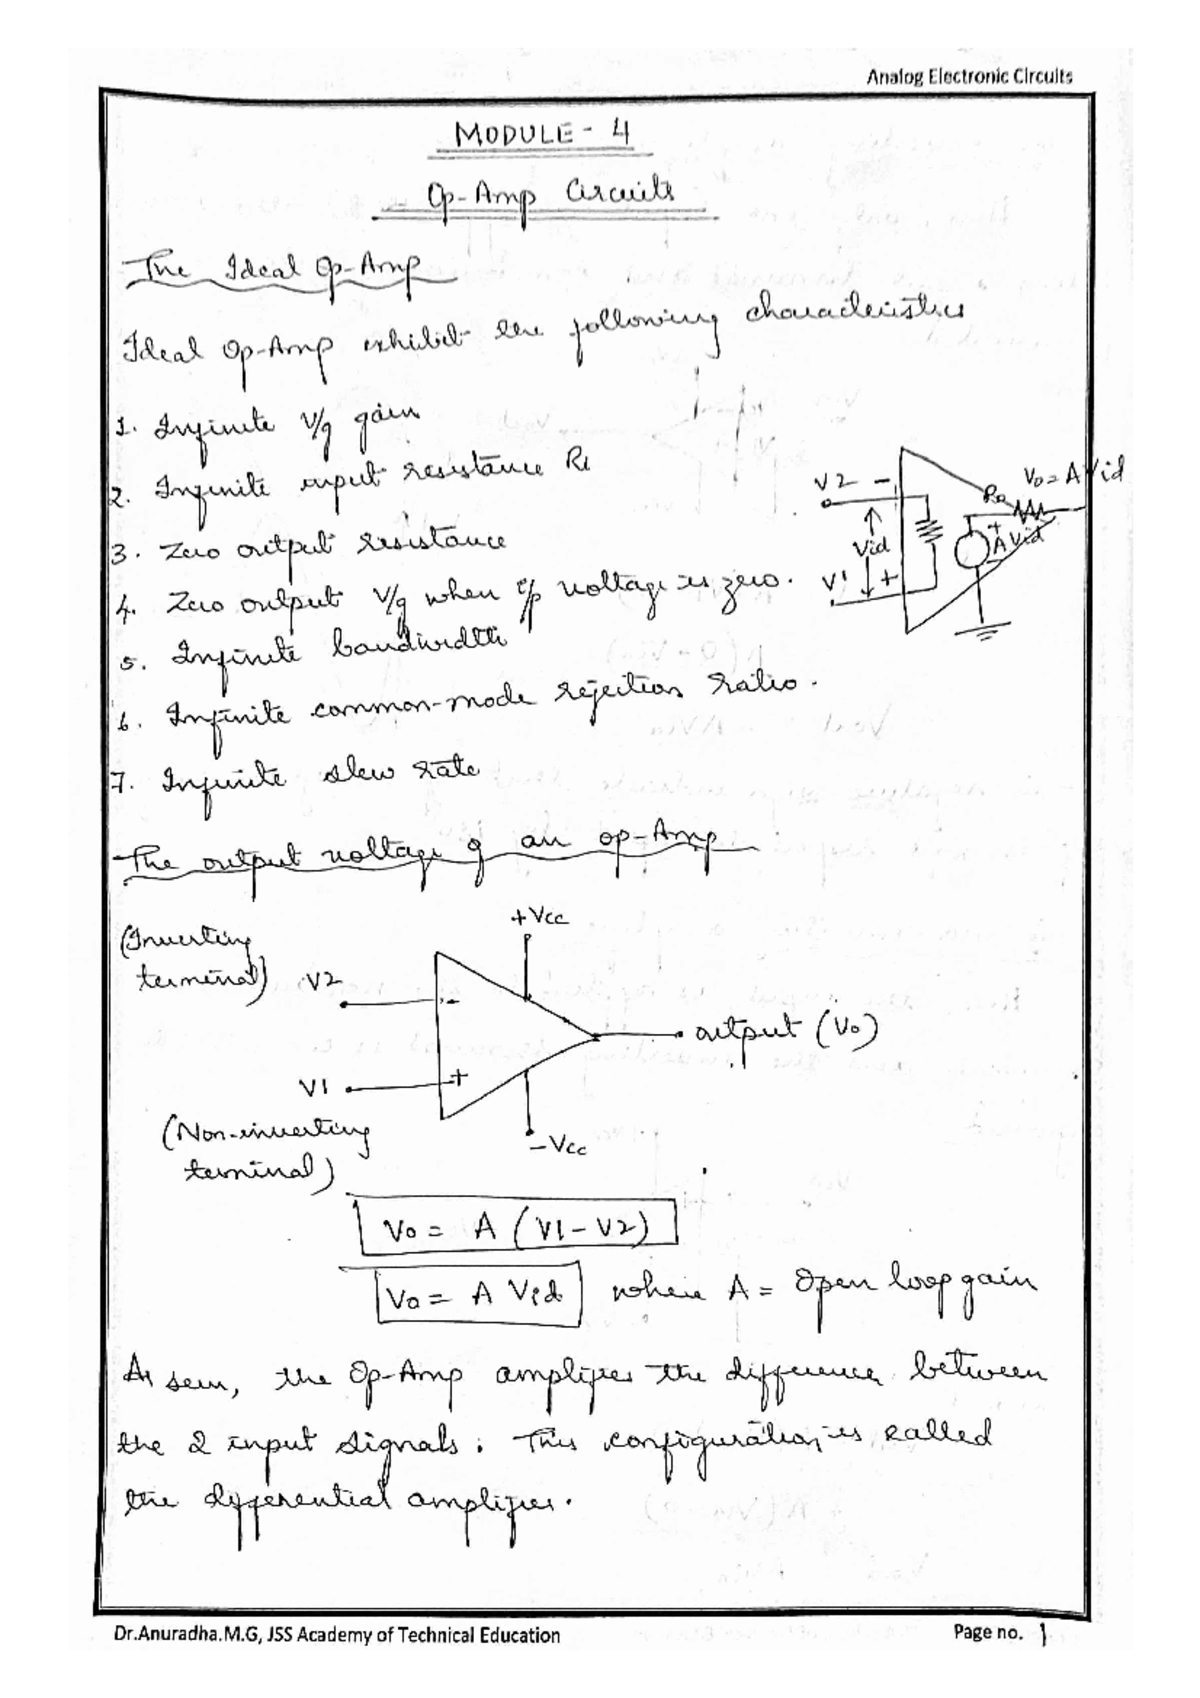 Analog Electronic Circuits
MODULE - 4
Op-Amp Circuits
The Ideal Op-Amp
Ideal Op-Amp exhibit the following characteristics
1. Infinite V/g gain
2. Infinite input resistance Ri
3. Zero output resistance
4. Zero output V/g when i/p voltage is zero.
5. Infinite bandwidth
6. Infinite common-mode rejection ratio.
7. Infinite slew rate
V2 -
Vid
V1 +
Ro
Vo = A Vid
+
A Vid
-
The output voltage of an op-Amp
(Inverting
terminal) V2
-
+Vcc
output (Vo)
V1
+
-Vcc
(Non-inverting
terminal)
Vo = A (V1 - V2)
Vo = A Vid where A = Open loop gain
As seen, the Op-Amp amplifies the difference between
the 2 input signals. This configuration is called
the differential amplifier.
Dr.Anuradha.M.G, JSS Academy of Technical Education
Page no. 1